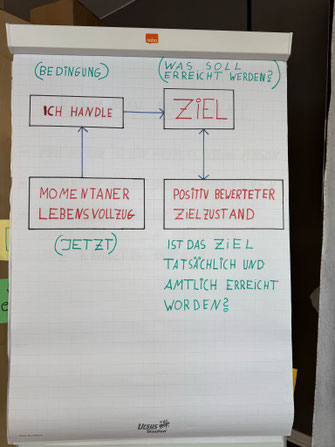 nobo
(BEDINGUNG)
(WAS SOLL
ERREICHT WERDEN?)
ICH HANDLE
ZiEL
MOMENTANER
LEBENSVOLLZUG
POSITIV BEWERTETER
ZIELZUSTAND
(JETZT)
IST DAS ZiEL
TATSÄCHLICH UND
AMTLICH ERREICHT
WORDEN?
URSUS